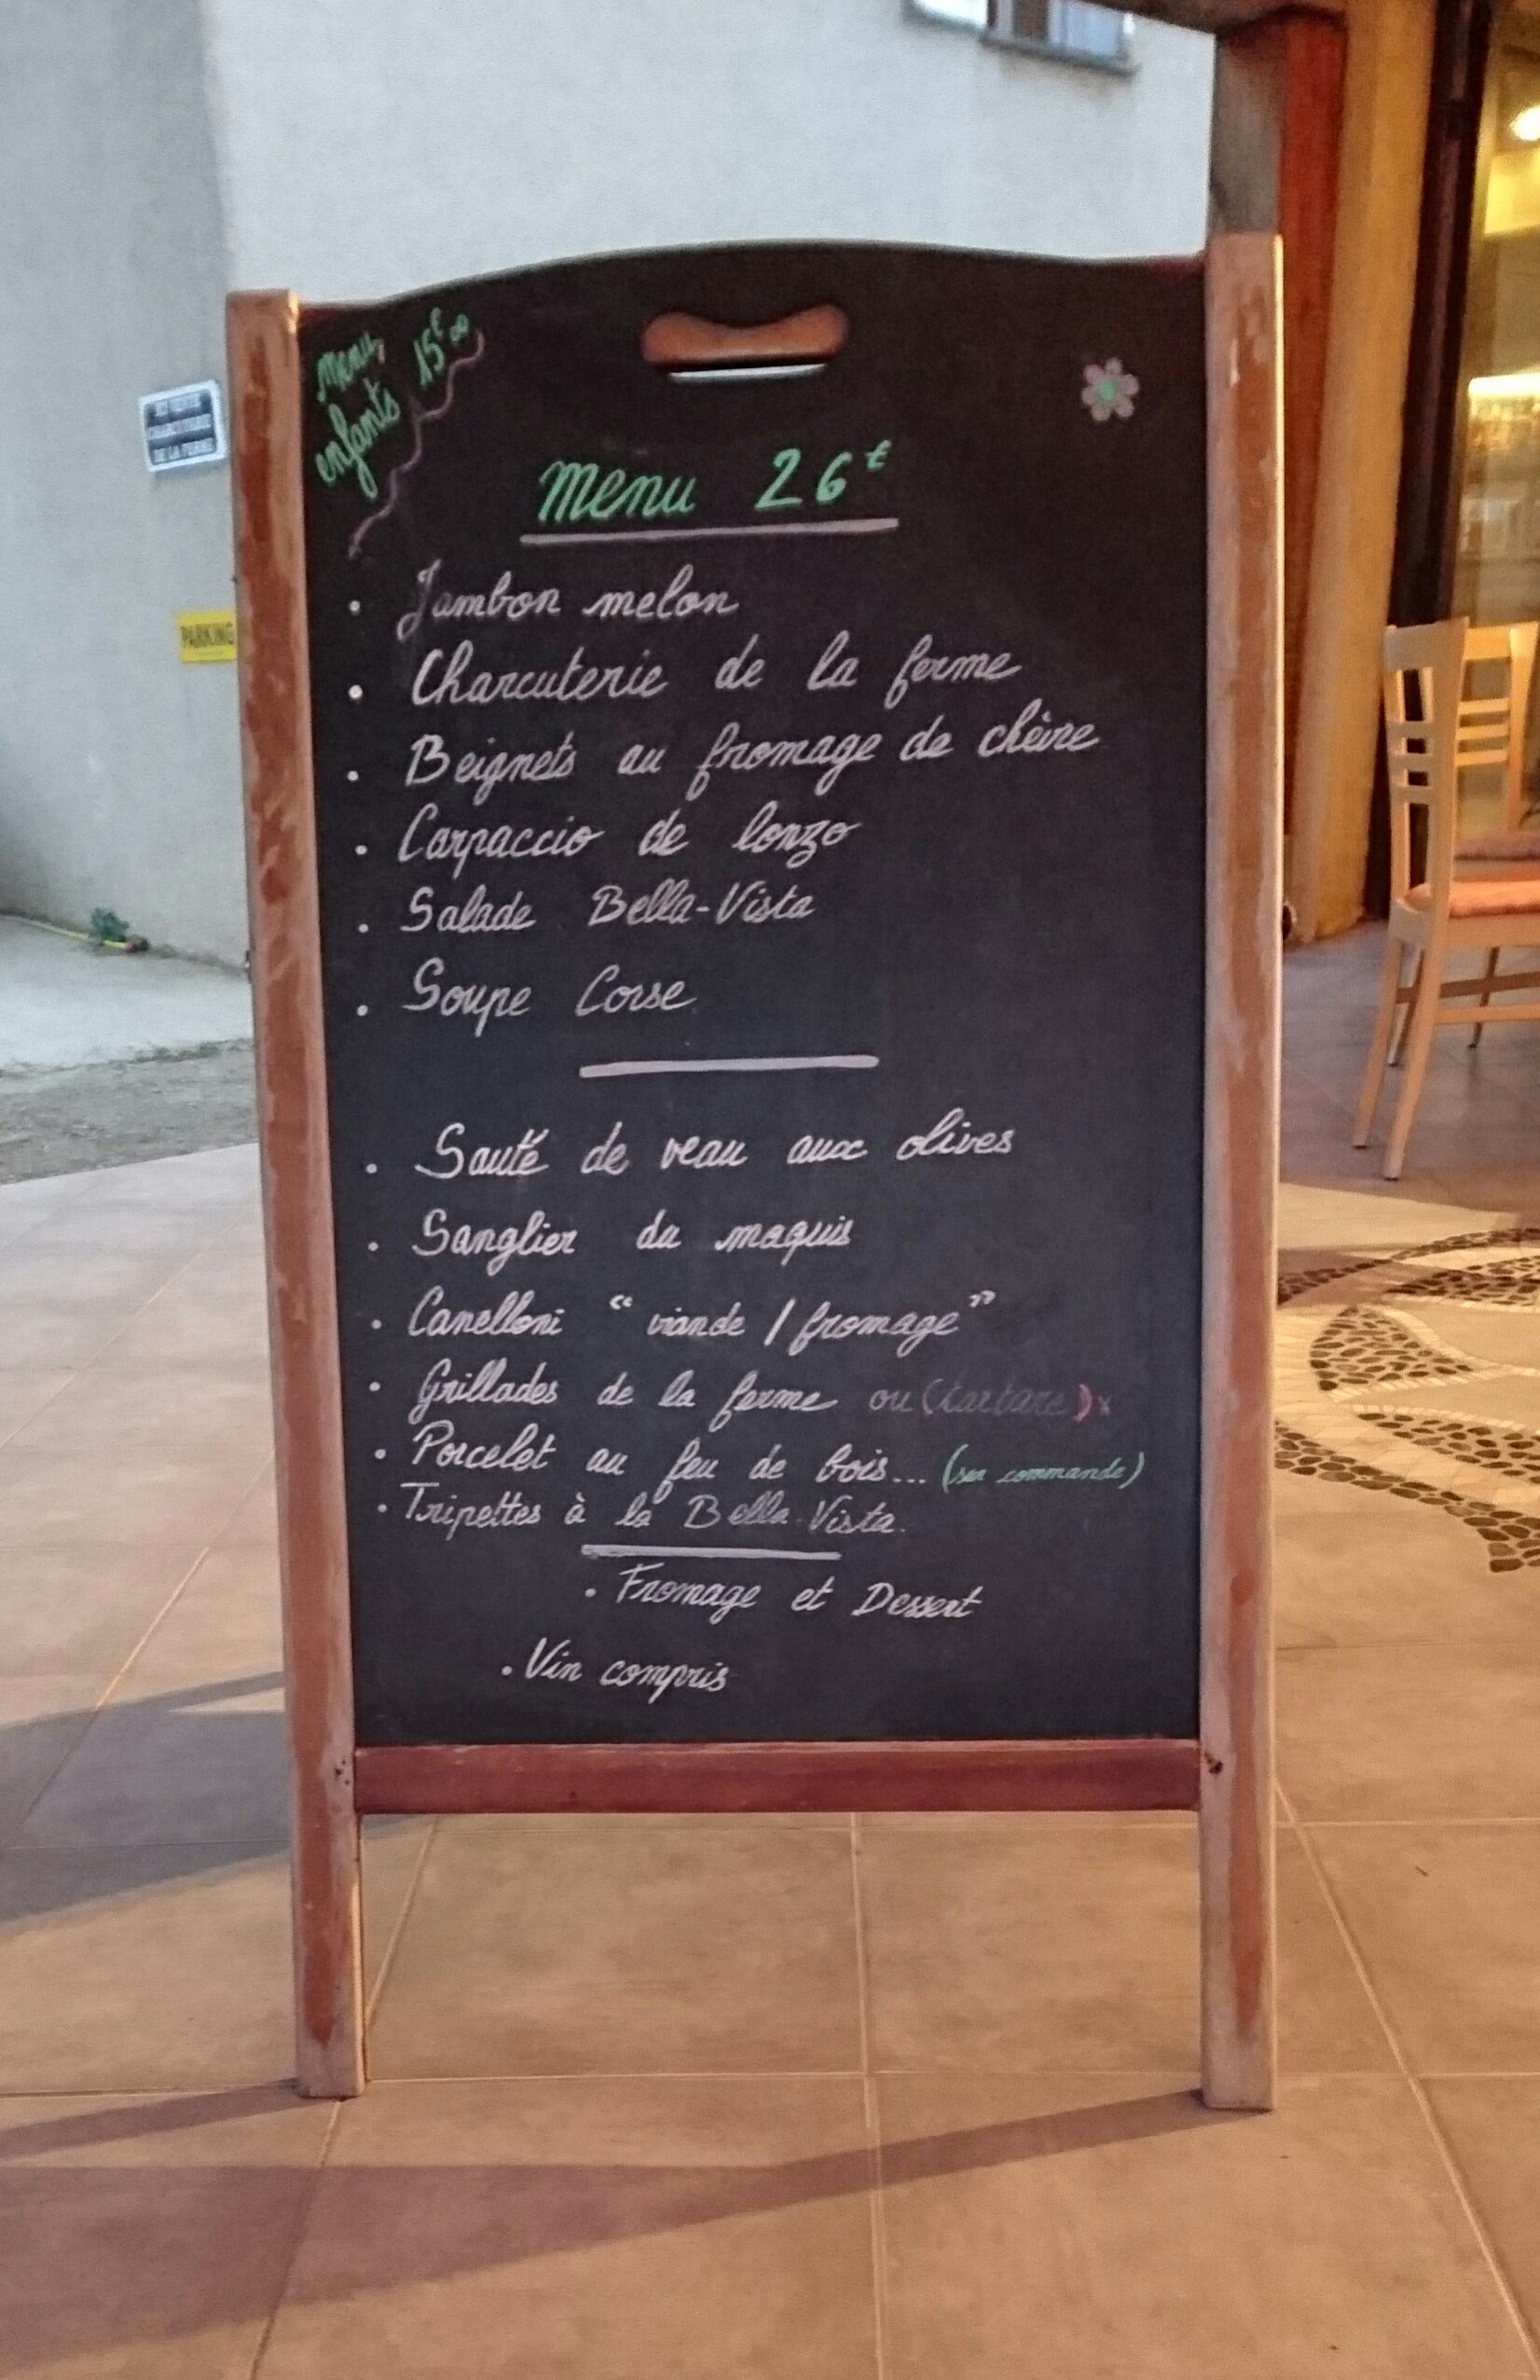 Menu
enfants 15€00
Menu 26€
. Jambon melon
. Charcuterie de la ferme
. Beignets au fromage de chèvre
. Carpaccio de lonzo
. Salade Bella-Vista
. Soupe Corse
. Sauté de veau aux olives
. Sanglier du maquis
. Canelloni "viande / fromage"
. Grillades de la ferme ou (tartare)x
. Porcelet au feu de bois... (sur commande)
. Tripettes à la Bella-Vista.
. Fromage et Dessert
. Vin compris
PARKING
DE LA FERME